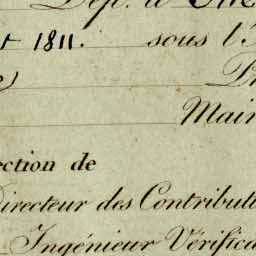 1811. sous l'
Mair
ection de
Directeur des Contributi
Ingénieur Vérifica